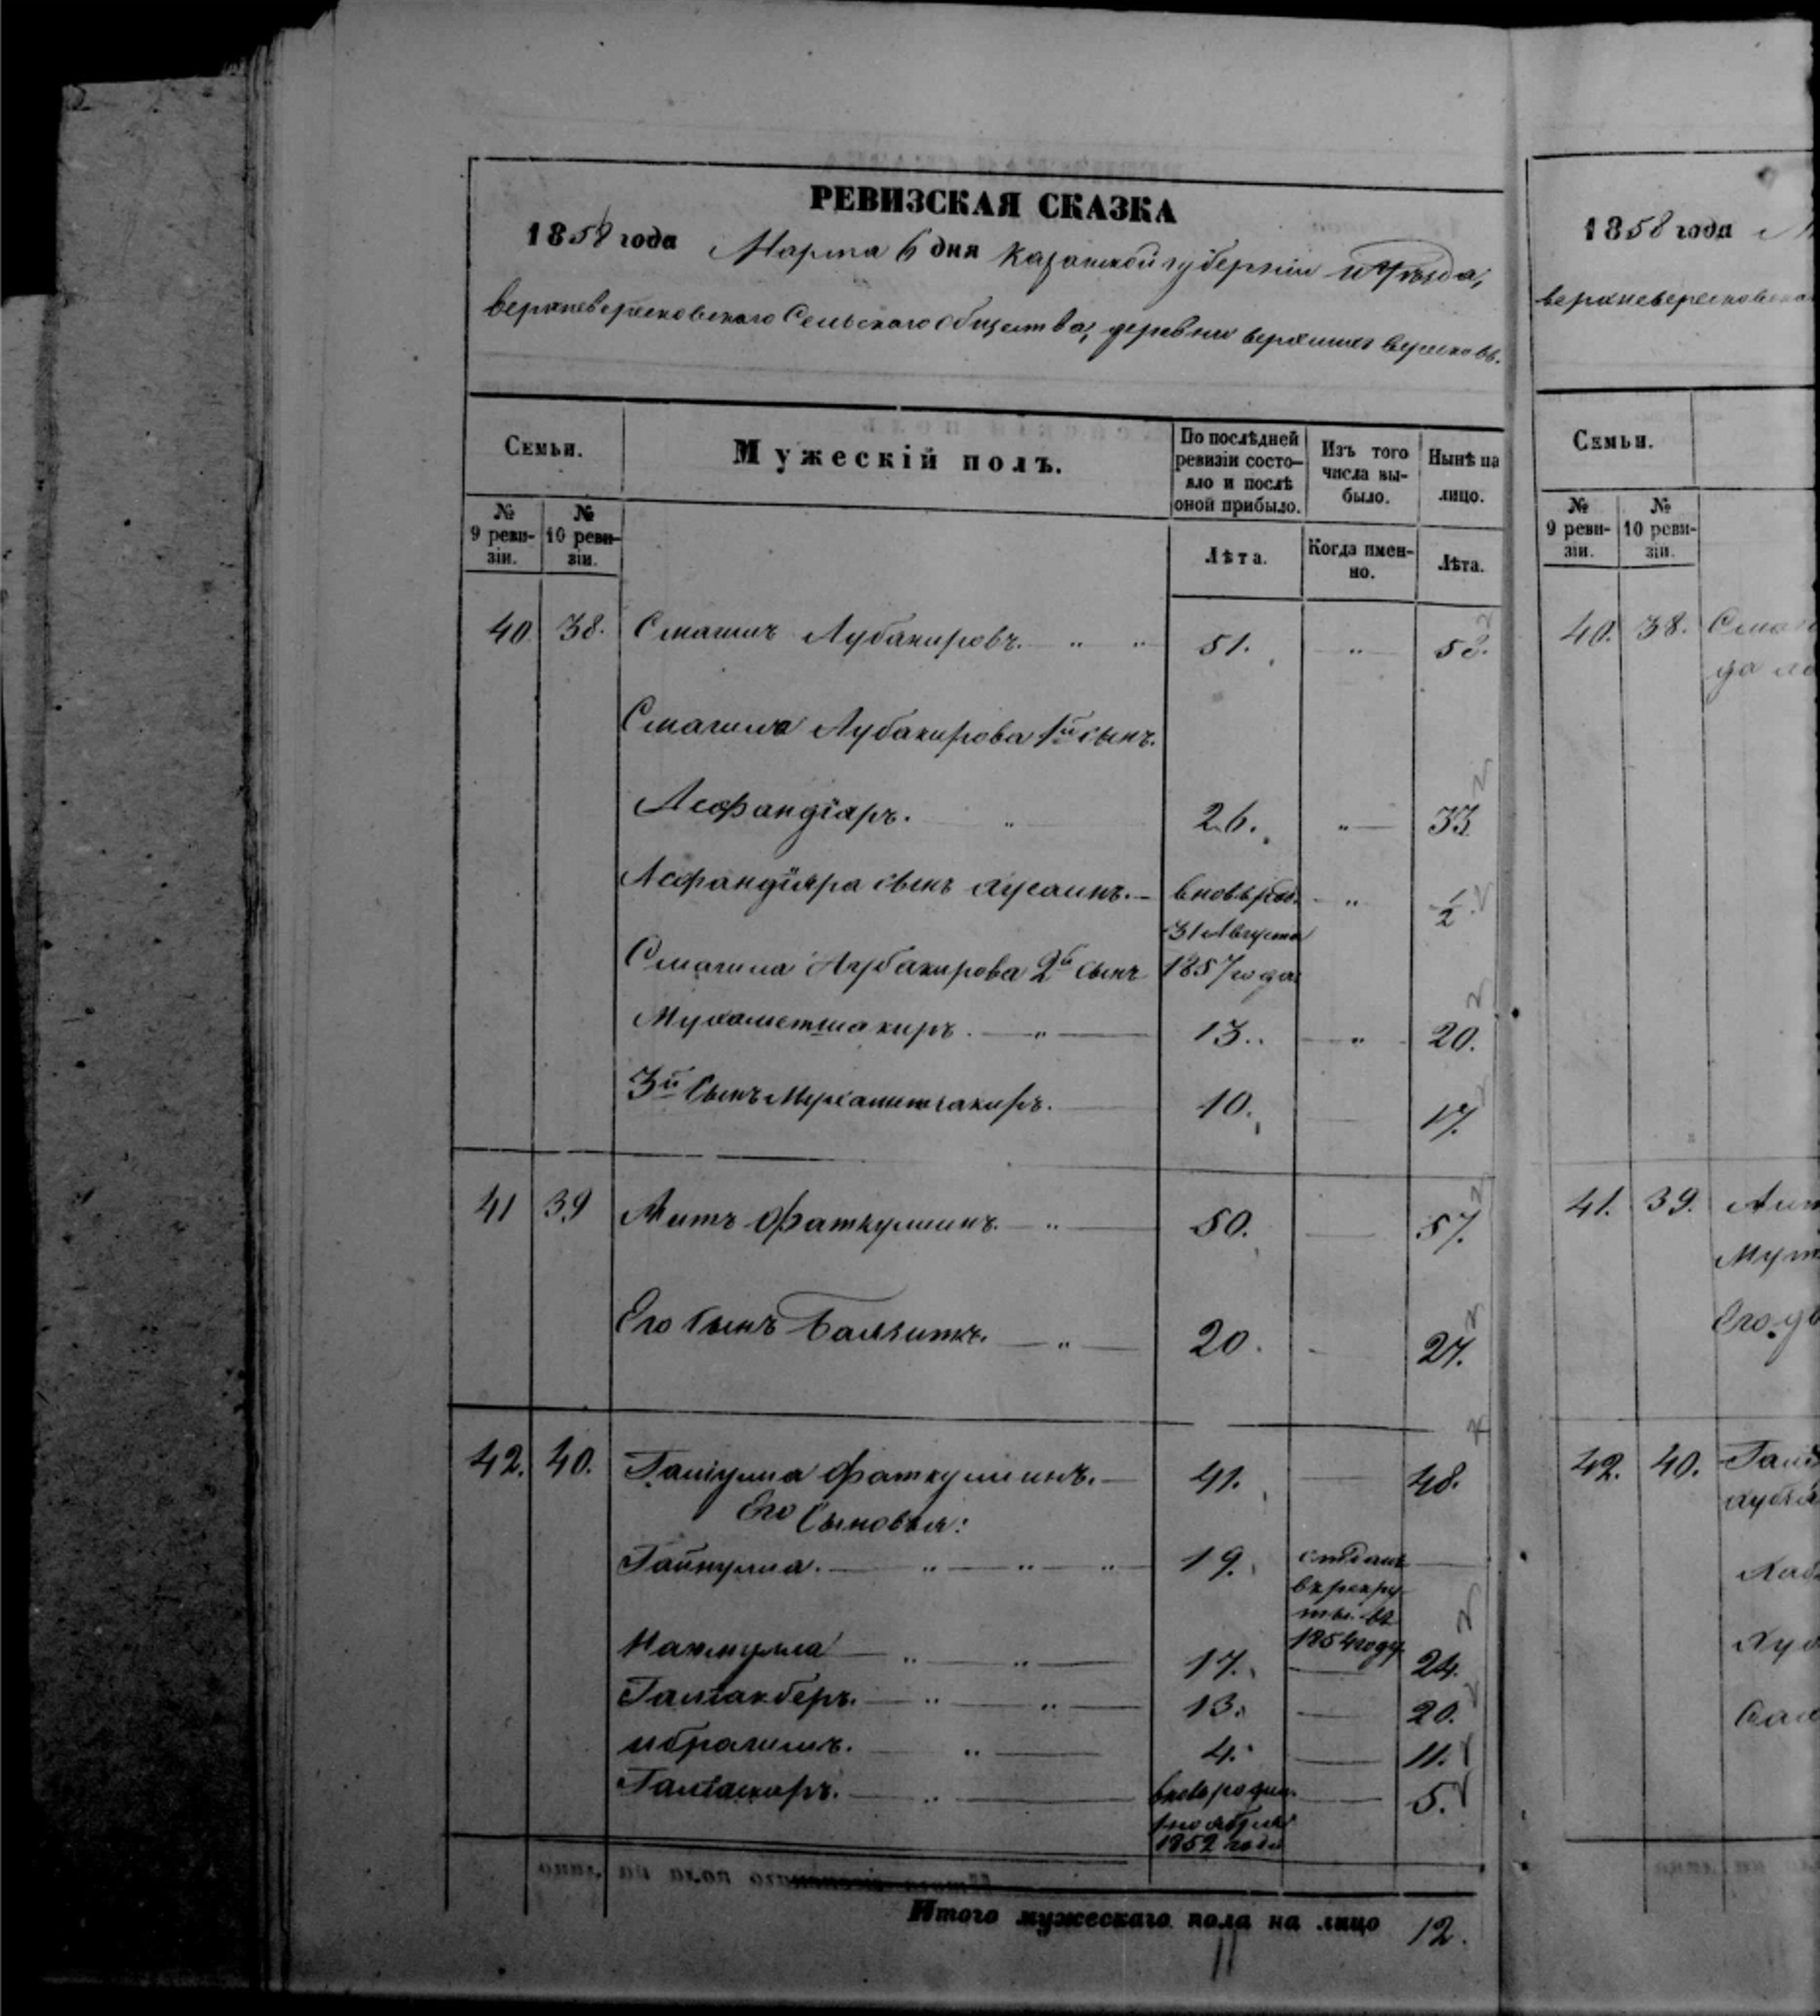 РЕВИЗСКАЯ СКАЗКА
1858 года Марта 6 дня Казанской губерніи и Уѣзда,
верхневересковского Сельского общества, деревни верхнихъ вересковъ.
Семьи.
Мужескій полъ.
По послѣдней ревизіи состояло и послѣ оной прибыло.
Изъ того числа выбыло.
Нынѣ на лицо.
№ 9 ревизіи.
№ 10 ревизіи.
Лѣта.
Когда именно.
Лѣта.
40. 38. Смагилъ Аубакировъ. 51. 58.
Смагила Аубакирова 1й сынъ.
Асфандіяръ. 26. 33.
Асфандіяра сынъ Хусаинъ. вновь рож. 1/2
31 Августа
Смагила Аубакирова 2й сынъ 1857 года
Мухаметшакиръ. 13. 20.
3й Сынъ 10. 17.
41 39 Аитъ Фаткуллинъ. 50. 57.
Его сынъ 20. 27.
42. 40. Фаткуллинъ. 41. 48.
Его Сыновья:
Гайнулла. 19. отданъ
въ рекру-
ты въ
1854 году
17. 24.
Галіакберъ. 13. 20.
Ибрагимъ. 4. 11.
Галіаскаръ. вновь родил. 5.
1852 года
Итого мужескаго пола на лицо 12.
11
1858 года
верхневересковско
Семьи.
№ 9 ревизіи.
№ 10 ревизіи.
40. 38.
41. 39.
42. 40.